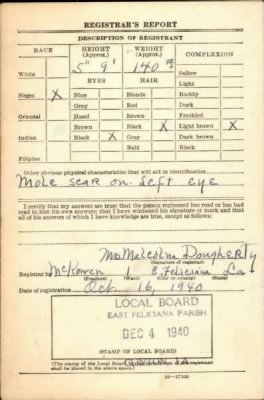 REGISTRAR'S REPORT
DESCRIPTION OF REGISTRANT
RACE HEIGHT (Approx.) WEIGHT (Approx.) COMPLEXION
5" 9' 140 #s
White Sallow
EYES HAIR Light
Negro X Blue Blonde Ruddy
Gray Red Dark
Oriental Hazel Brown Freckled
Brown Black X Light brown X
Indian Black X Gray Dark brown
Bald Black
Filipino
Other obvious physical characteristics that will aid in identification
Mole scar on Left eye
I certify that my answers are true; that the person registered has read or has had
read to him his own answers; that I have witnessed his signature or mark and that
all of his answers of which I have knowledge are true, except as follows:
Mrs Malcolm Dougherty
(Signature of registrar)
Registrar for McKowen 1 E. Feliciana La
(Precinct) (Ward) (City or county) (State)
Date of registration Oct. 16, 1940
LOCAL BOARD
EAST FELICIANA PARISH
DEC 4 1940
CLINTON, LA.
(STAMP OF LOCAL BOARD)
(The stamp of the Local Board
shall be placed in the above space.)
16—17105